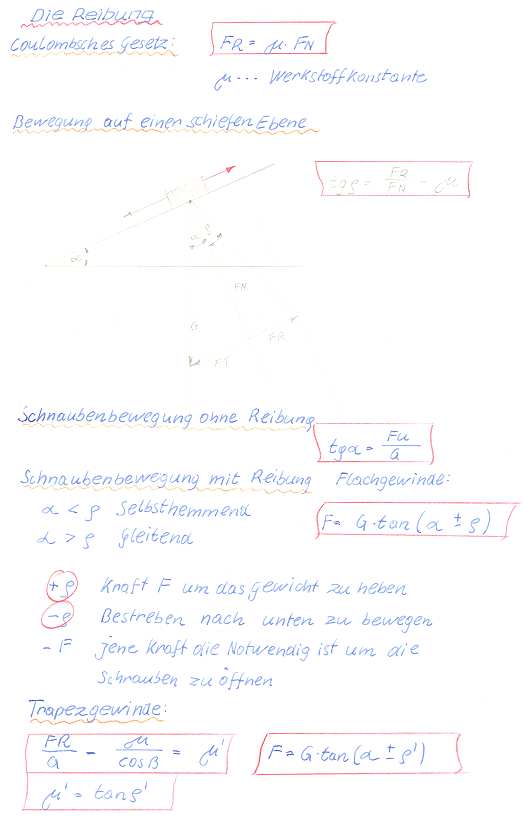 Die Reibung
Coulombsches Gesetz: FR = μ · FN
μ ... Werkstoffkonstante
Bewegung auf einen schiefen Ebene
tgρ = FR/FN = μ
α
α ρ
FN
G
FR
FT
Schraubenbewegung ohne Reibung
tgα = Fu/G
Schraubenbewegung mit Reibung Flachgewinde:
α < ρ Selbsthemmend
F = G·tan(α ± ρ)
α > ρ gleitend
+ρ Kraft F um das Gewicht zu heben
-ρ Bestreben nach unten zu bewegen
- F jene Kraft die Notwendig ist um die
Schrauben zu öffnen
Trapezgewinde:
FR/G - μ/cosβ = μ' F = G·tan(α ± ρ')
μ' = tanρ'